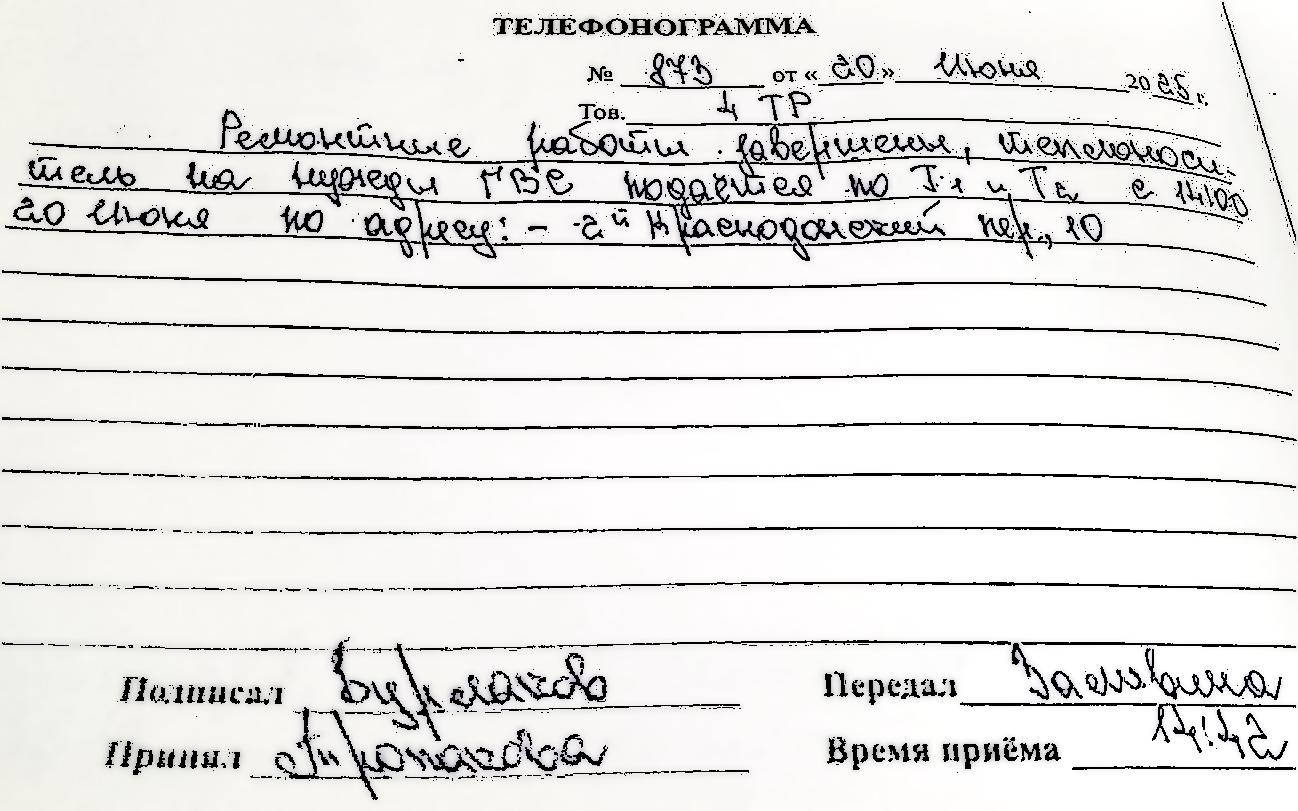 ТЕЛЕФОНОГРАММА
№ 873 от «20» Июня 2025 г.
Тов. 4 ТР
Ремонтные работы завершены, теплоноси-
тель на нужды ГВС подаётся по Т1 и Т2 с 14:00
20 Июня по адресу: - 2й Краснодонский пер., 10
Подписал Бурлаков Передал
Принял Время приёма 14:42